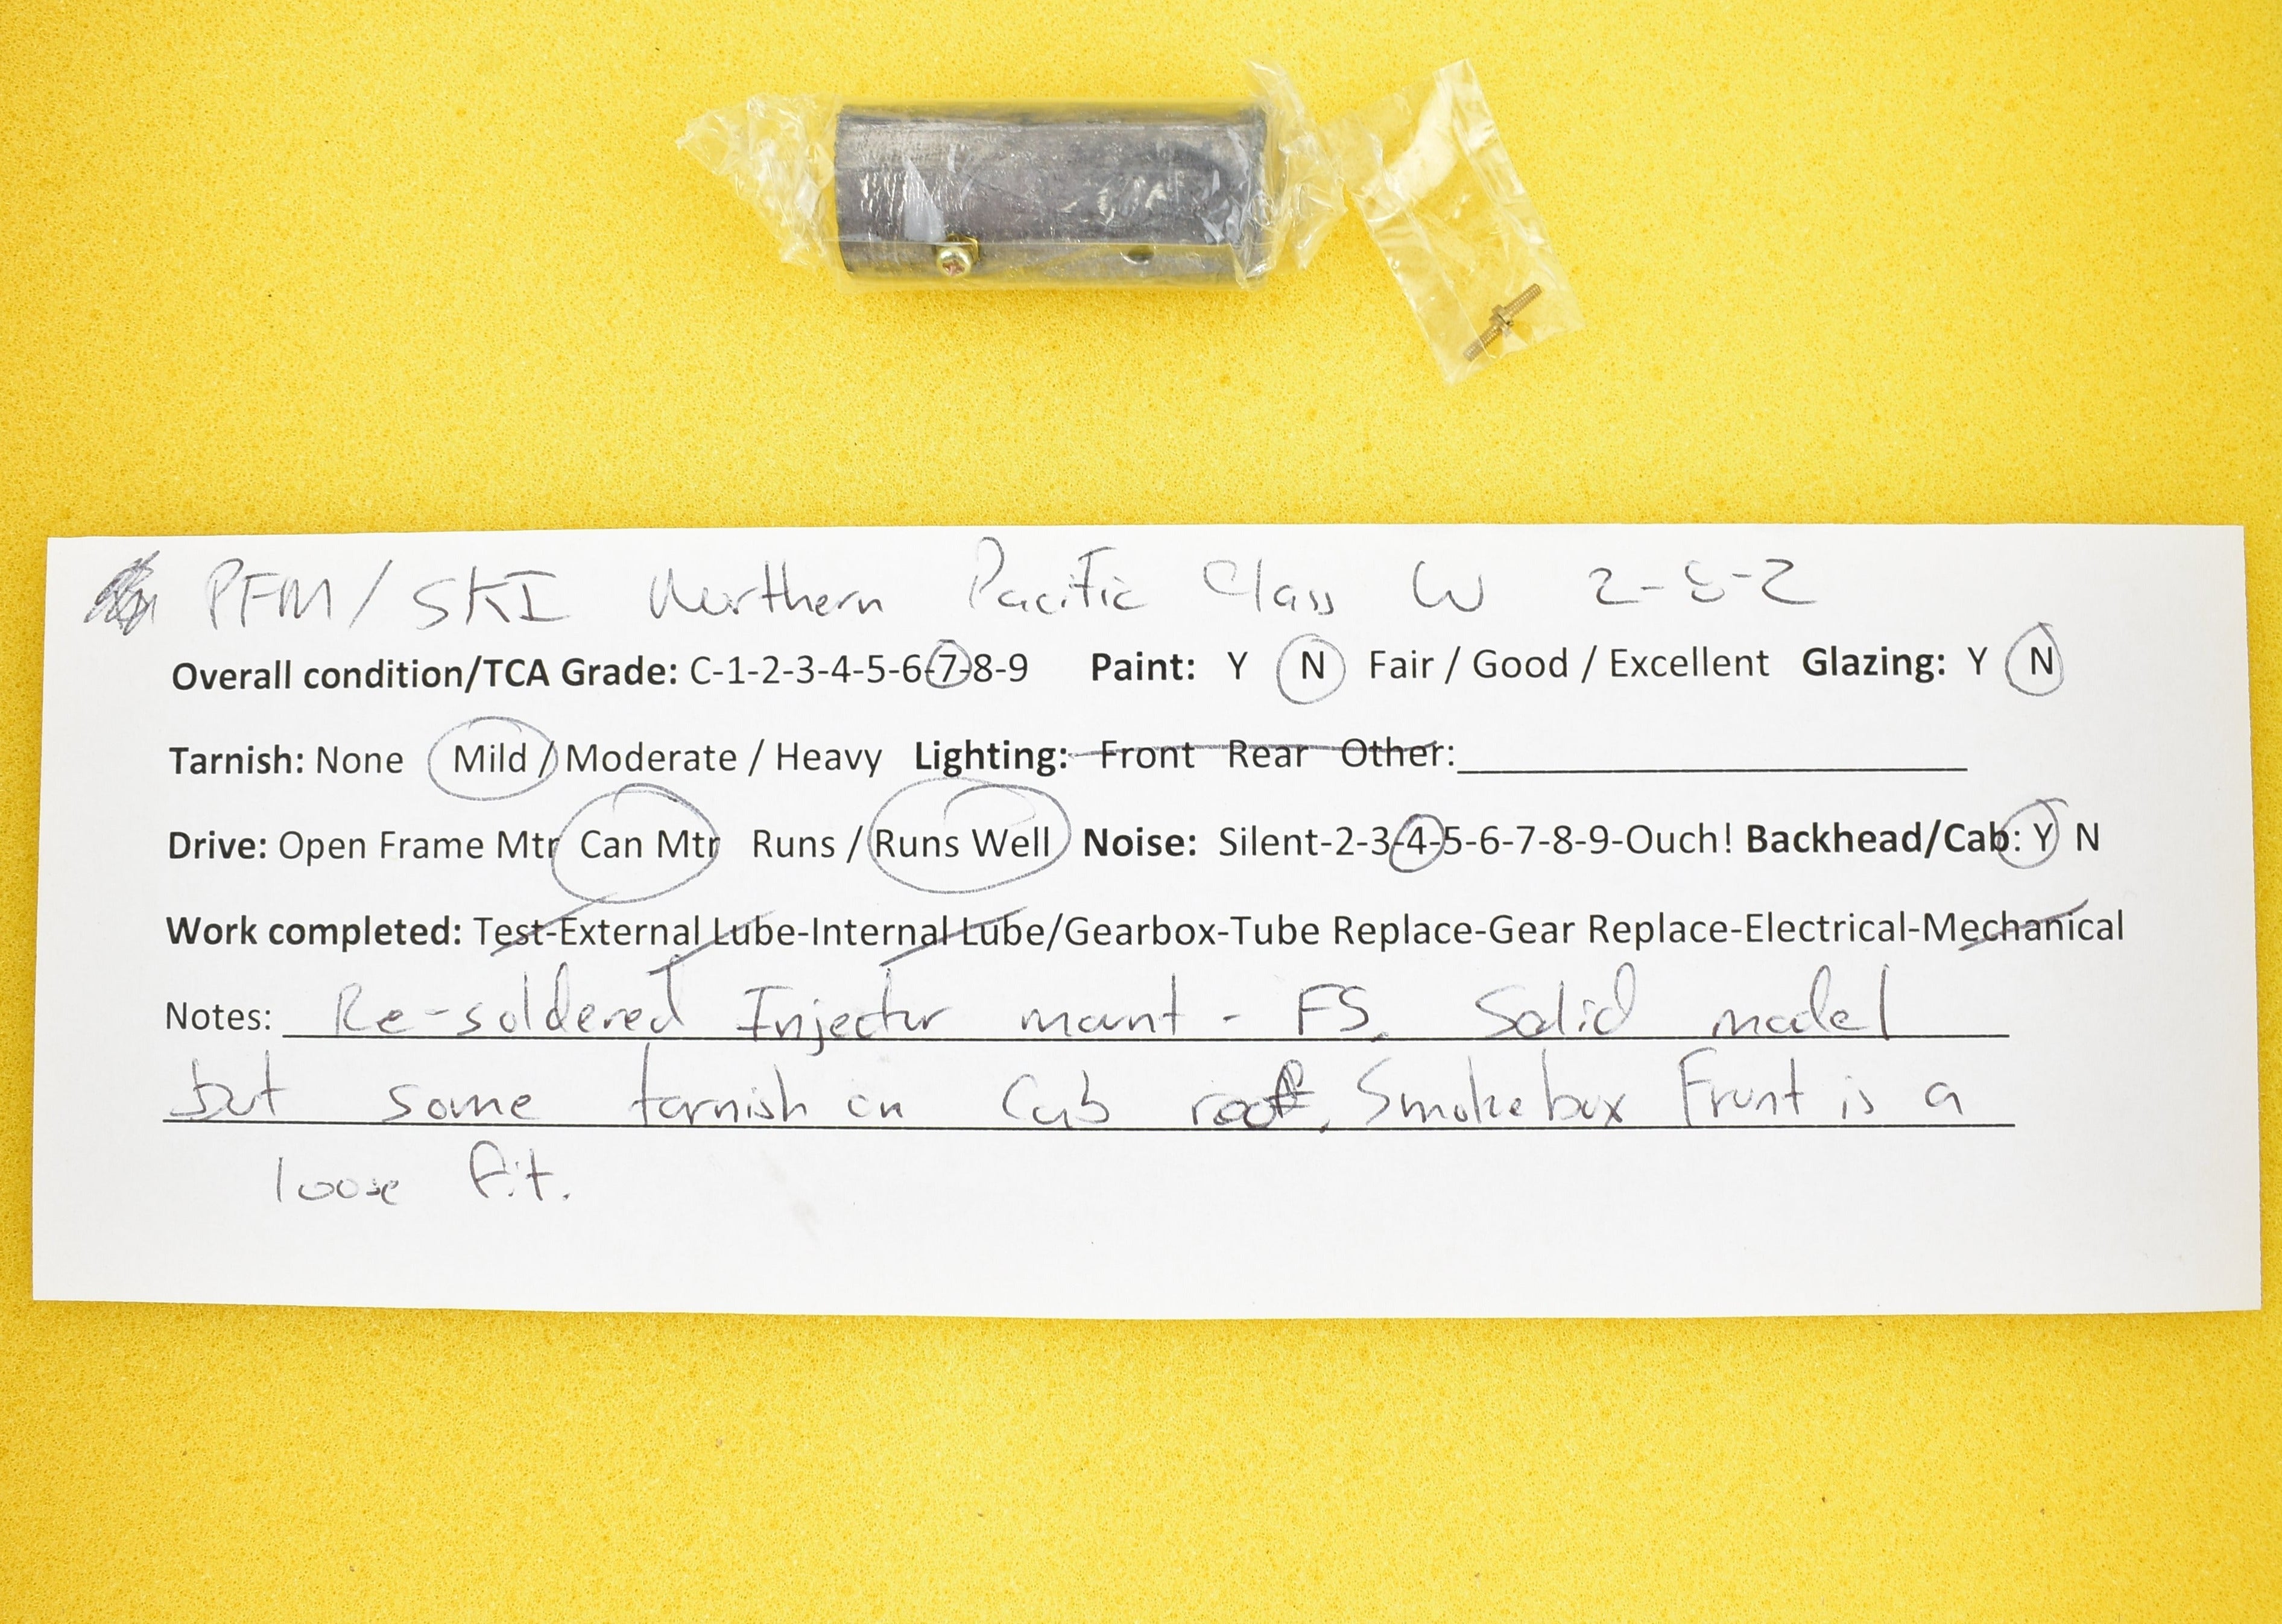 PFM/SKI Northern Pacific Class W 2-8-2
Overall condition/TCA Grade: C-1-2-3-4-5-6-7-8-9 Paint: Y N Fair / Good / Excellent Glazing: Y N
Tarnish: None Mild / Moderate / Heavy Lighting: Front Rear Other:
Drive: Open Frame Mtr Can Mtr Runs / Runs Well Noise: Silent-2-3-4-5-6-7-8-9-Ouch! Backhead/Cab: Y N
Work completed: Test-External Lube-Internal Lube/Gearbox-Tube Replace-Gear Replace-Electrical-Mechanical
Notes: Re-soldered Injector mount - FS. Solid model
but some tarnish on Cab roof. Smokebox Front is a
loose fit.